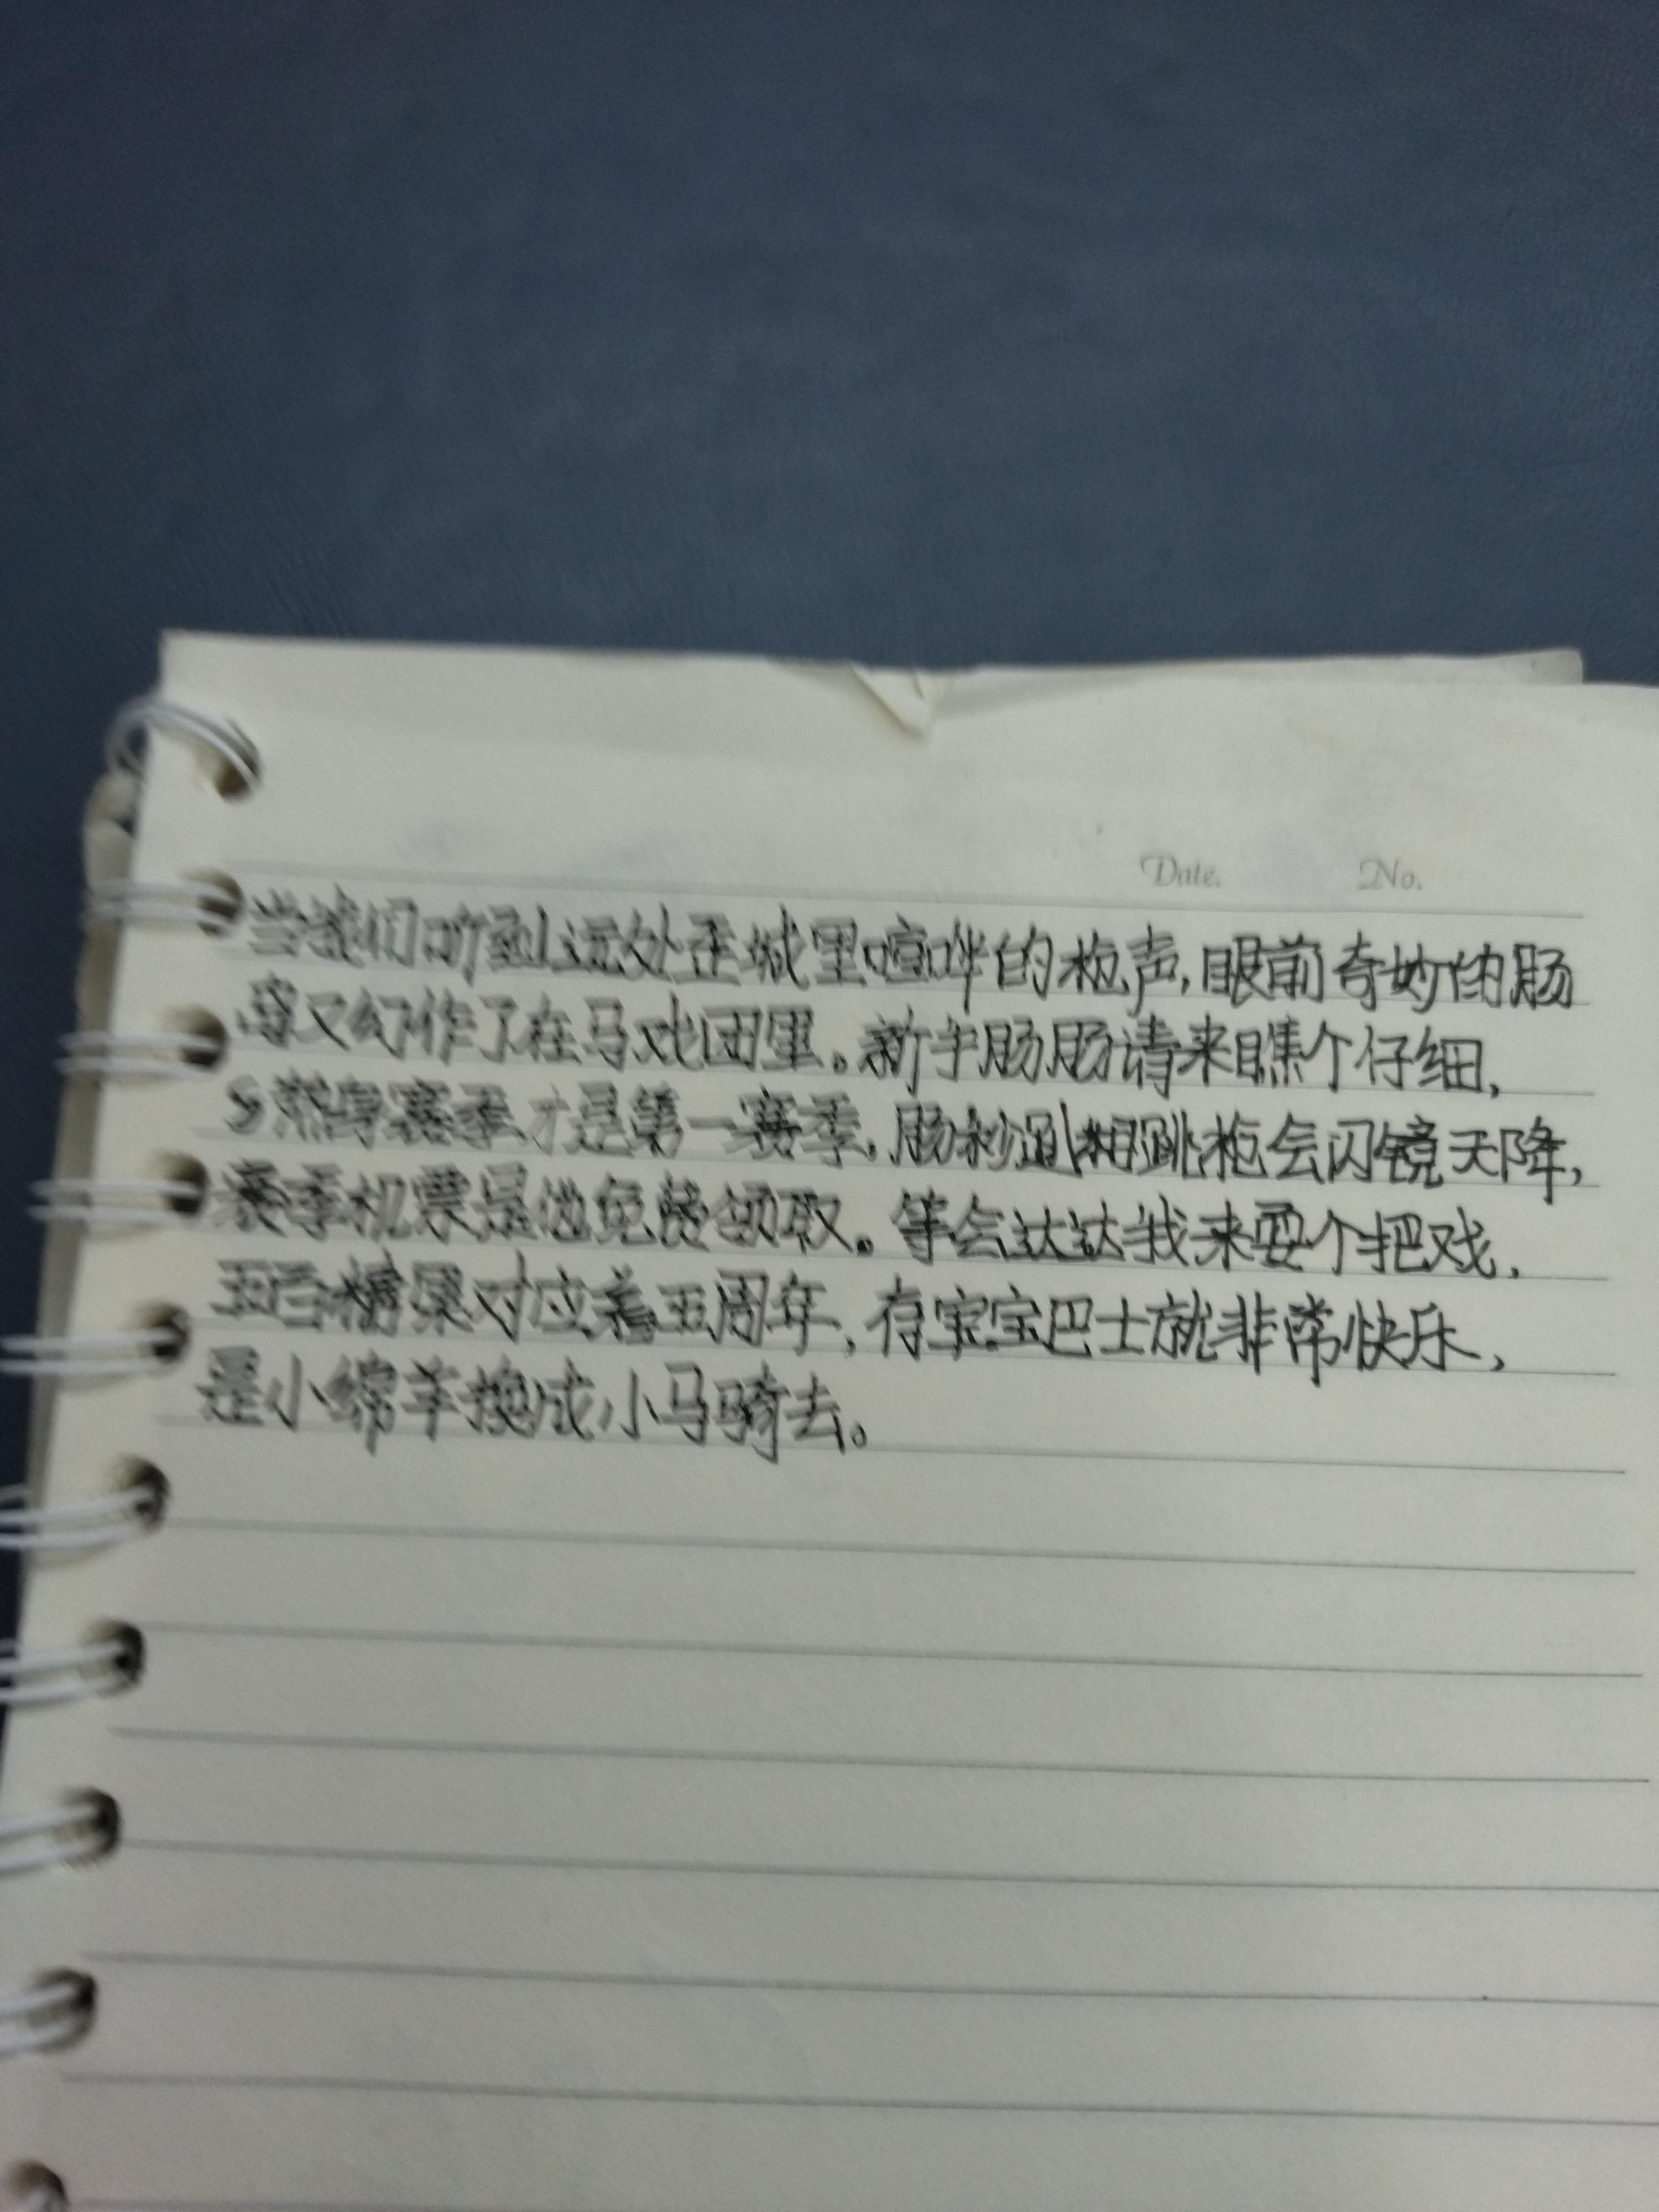 Date. No.
当我们听到远处歪城里喧哗的枪声,眼前奇妙的肠
穿又幻作了在马戏团里。新手肠肠请来瞧个仔细,
S热身赛季才是第一赛季,肠秒跳枪会闪镜天降,
赛季机票是他免费领取。等会达达我来耍个把戏,
五百糖果对应着五周年,存宝宝巴士就非常快乐,
是小绵羊换成小马骑去。